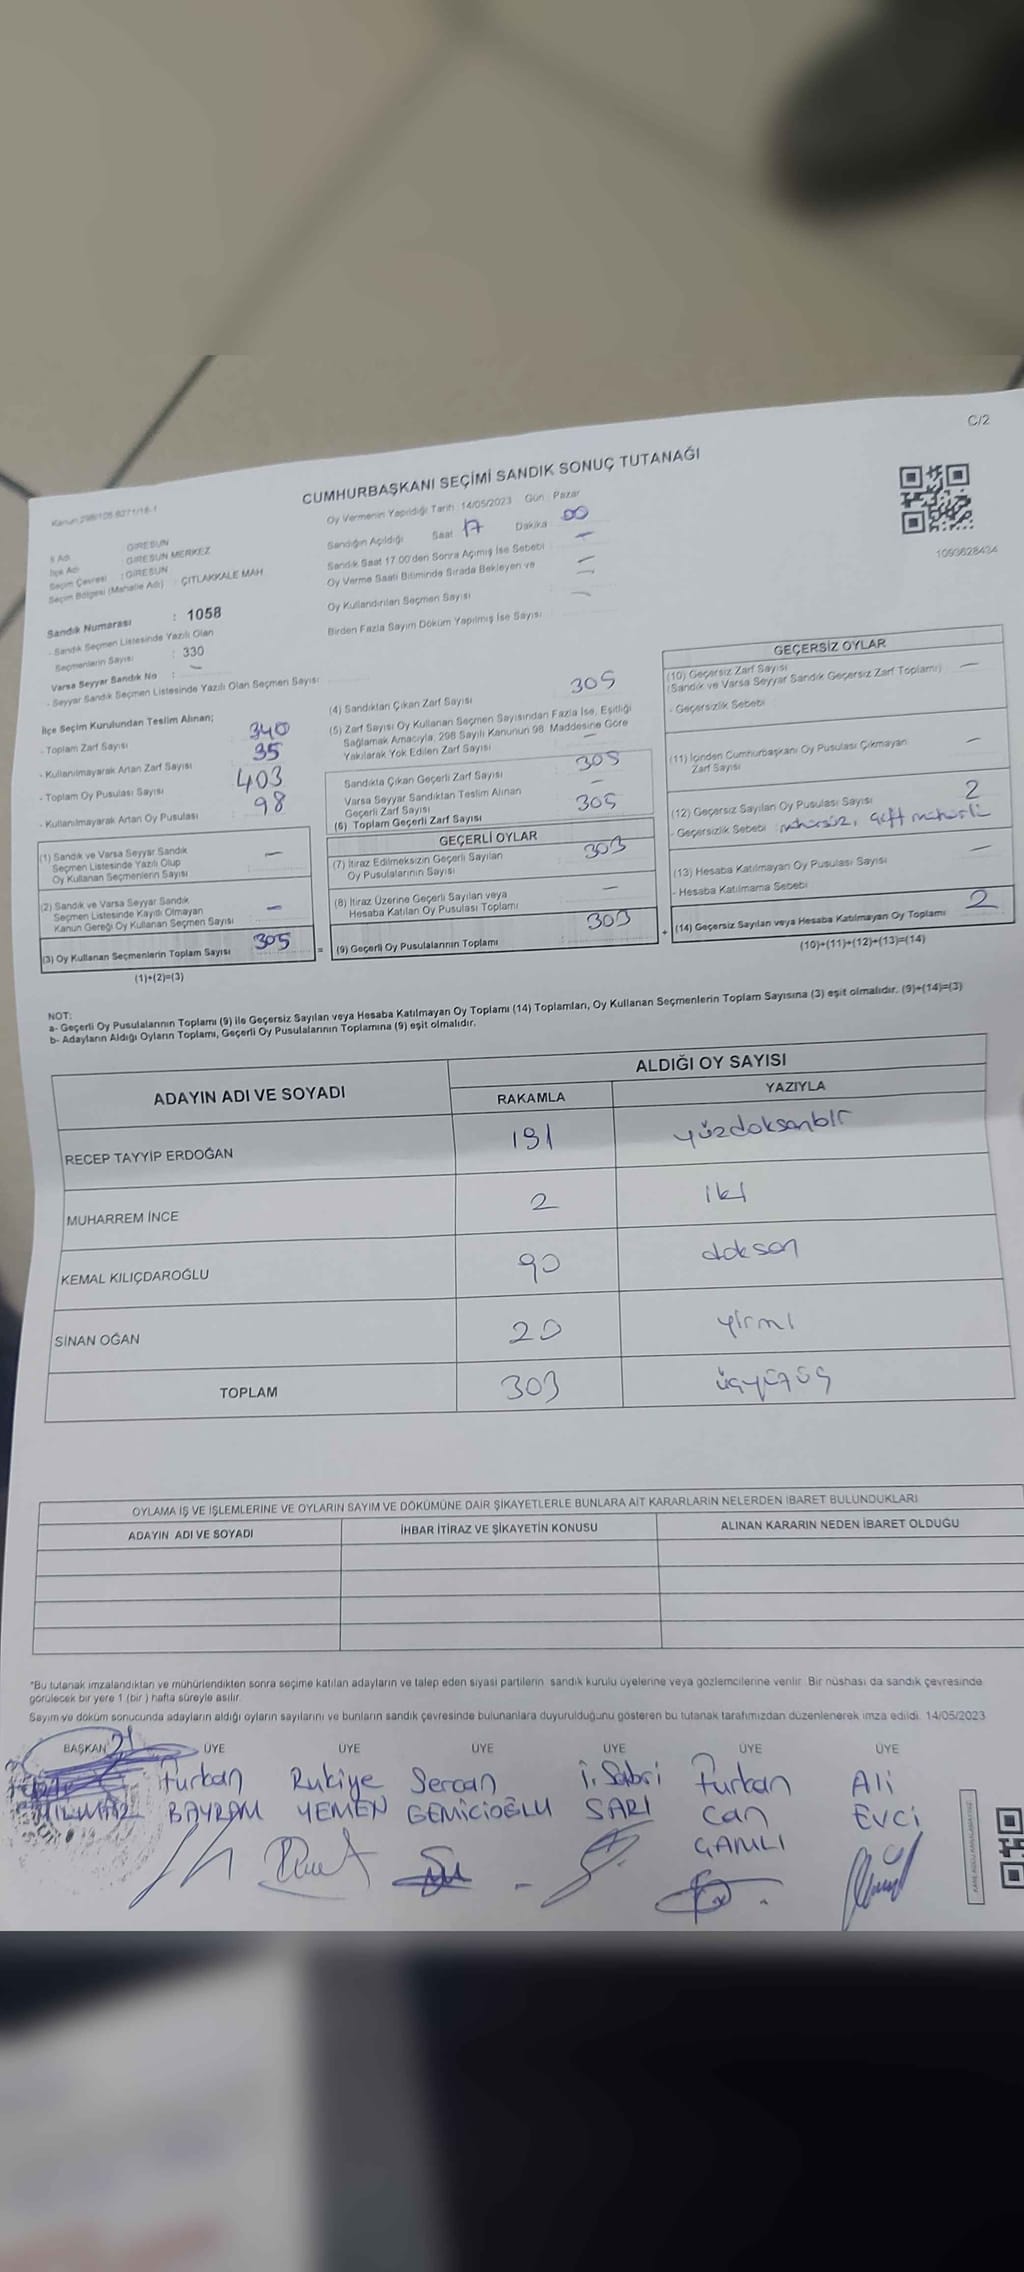 C/2
CUMHURBAŞKANI SEÇİMİ SANDIK SONUÇ TUTANAĞI
1093628434
İl Adı : GİRESUN
İlçe Adı : GİRESUN MERKEZ
Seçim Çevresi : GİRESUN
Seçim Bölgesi (Mahalle Adı) : ÇITLAKKALE MAH.
Sandık Numarası : 1058
- Sandık Seçmen Listesinde Yazılı Olan
Seçmenlerin Sayısı : 330
Varsa Seyyar Sandık No : -
- Seyyar Sandık Seçmen Listesinde Yazılı Olan Seçmen Sayısı:
Oy Vermenin Yapıldığı Tarih : 14/05/2023 Gün : Pazar
Sandığın Açıldığı Saat 17 Dakika 00
Sandık Saat 17:00'den Sonra Açılmış İse Sebebi -
Oy Verme Saati Bitiminde Sırada Bekleyen ve -
Oy Kullandırılan Seçmen Sayısı -
Birden Fazla Sayım Döküm Yapılmış İse Sayısı -
İlçe Seçim Kurulundan Teslim Alınan;
- Toplam Zarf Sayısı 340
- Kullanılmayarak Artan Zarf Sayısı 35
- Toplam Oy Pusulası Sayısı 403
- Kullanılmayarak Artan Oy Pusulası : 98
(1) Sandık ve Varsa Seyyar Sandık
Seçmen Listesinde Yazılı Olup
Oy Kullanan Seçmenlerin Sayısı -
(2) Sandık ve Varsa Seyyar Sandık
Seçmen Listesinde Kayıtlı Olmayan
Kanun Gereği Oy Kullanan Seçmen Sayısı -
(3) Oy Kullanan Seçmenlerin Toplam Sayısı 305 =
(1)+(2)=(3)
(4) Sandıktan Çıkan Zarf Sayısı 305
(5) Zarf Sayısı Oy Kullanan Seçmen Sayısından Fazla İse, Eşitliği
Sağlamak Amacıyla, 298 Sayılı Kanunun 98. Maddesine Göre
Yakılarak Yok Edilen Zarf Sayısı -
Sandıkta Çıkan Geçerli Zarf Sayısı 305
Varsa Seyyar Sandıktan Teslim Alınan
Geçerli Zarf Sayısı -
(6) Toplam Geçerli Zarf Sayısı 305
GEÇERLİ OYLAR
(7) İtiraz Edilmeksizin Geçerli Sayılan
Oy Pusulalarının Sayısı 303
(8) İtiraz Üzerine Geçerli Sayılan veya
Hesaba Katılan Oy Pusulası Toplamı -
(9) Geçerli Oy Pusulalarının Toplamı 303 +
GEÇERSİZ OYLAR
(10) Geçersiz Zarf Sayısı
(Sandık ve Varsa Seyyar Sandık Geçersiz Zarf Toplamı) -
- Geçersizlik Sebebi
(11) İçinden Cumhurbaşkanı Oy Pusulası Çıkmayan
Zarf Sayısı -
(12) Geçersiz Sayılan Oy Pusulası Sayısı 2
- Geçersizlik Sebebi : mühürsüz, çift mühürlü
(13) Hesaba Katılmayan Oy Pusulası Sayısı -
- Hesaba Katılmama Sebebi
(14) Geçersiz Sayılan veya Hesaba Katılmayan Oy Toplamı 2
(10)+(11)+(12)+(13)=(14)
NOT:
a- Geçerli Oy Pusulalarının Toplamı (9) ile Geçersiz Sayılan veya Hesaba Katılmayan Oy Toplamı (14) Toplamları, Oy Kullanan Seçmenlerin Toplam Sayısına (3) eşit olmalıdır. (9)+(14)=(3)
b- Adayların Aldığı Oyların Toplamı, Geçerli Oy Pusulalarının Toplamına (9) eşit olmalıdır.
ADAYIN ADI VE SOYADI
ALDIĞI OY SAYISI
RAKAMLA
YAZIYLA
RECEP TAYYİP ERDOĞAN 191 yüzdoksanbir
MUHARREM İNCE 2 iki
KEMAL KILIÇDAROĞLU 90 doksan
SİNAN OĞAN 20 yirmi
TOPLAM 303 üçyüzüç
OYLAMA İŞ VE İŞLEMLERİNE VE OYLARIN SAYIM VE DÖKÜMÜNE DAİR ŞİKAYETLERLE BUNLARA AİT KARARLARIN NELERDEN İBARET BULUNDUKLARI
ADAYIN ADI VE SOYADI
İHBAR İTİRAZ VE ŞİKAYETİN KONUSU
ALINAN KARARIN NEDEN İBARET OLDUĞU
*Bu tutanak imzalandıktan ve mühürlendikten sonra seçime katılan adayların ve talep eden siyasi partilerin sandık kurulu üyelerine veya gözlemcilerine verilir. Bir nüshası da sandık çevresinde
görülecek bir yere 1 (bir ) hafta süreyle asılır.
Sayım ve döküm sonucunda adayların aldığı oyların sayılarını ve bunların sandık çevresinde bulunanlara duyurulduğunu gösteren bu tutanak tarafımızdan düzenlenerek imza edildi. 14/05/2023
BAŞKAN ÜYE ÜYE ÜYE ÜYE ÜYE ÜYE
Furkan Rukiye Sercan İ. Sabri Furkan Ali
YILMAZ BAYRAM YEMEN GEMİCİOĞLU SARI Can Evci
ÇAMLI